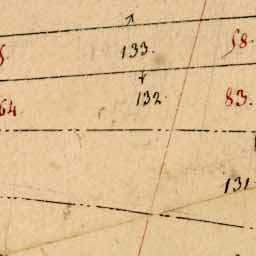 133.
58.
132.
64
83.
131